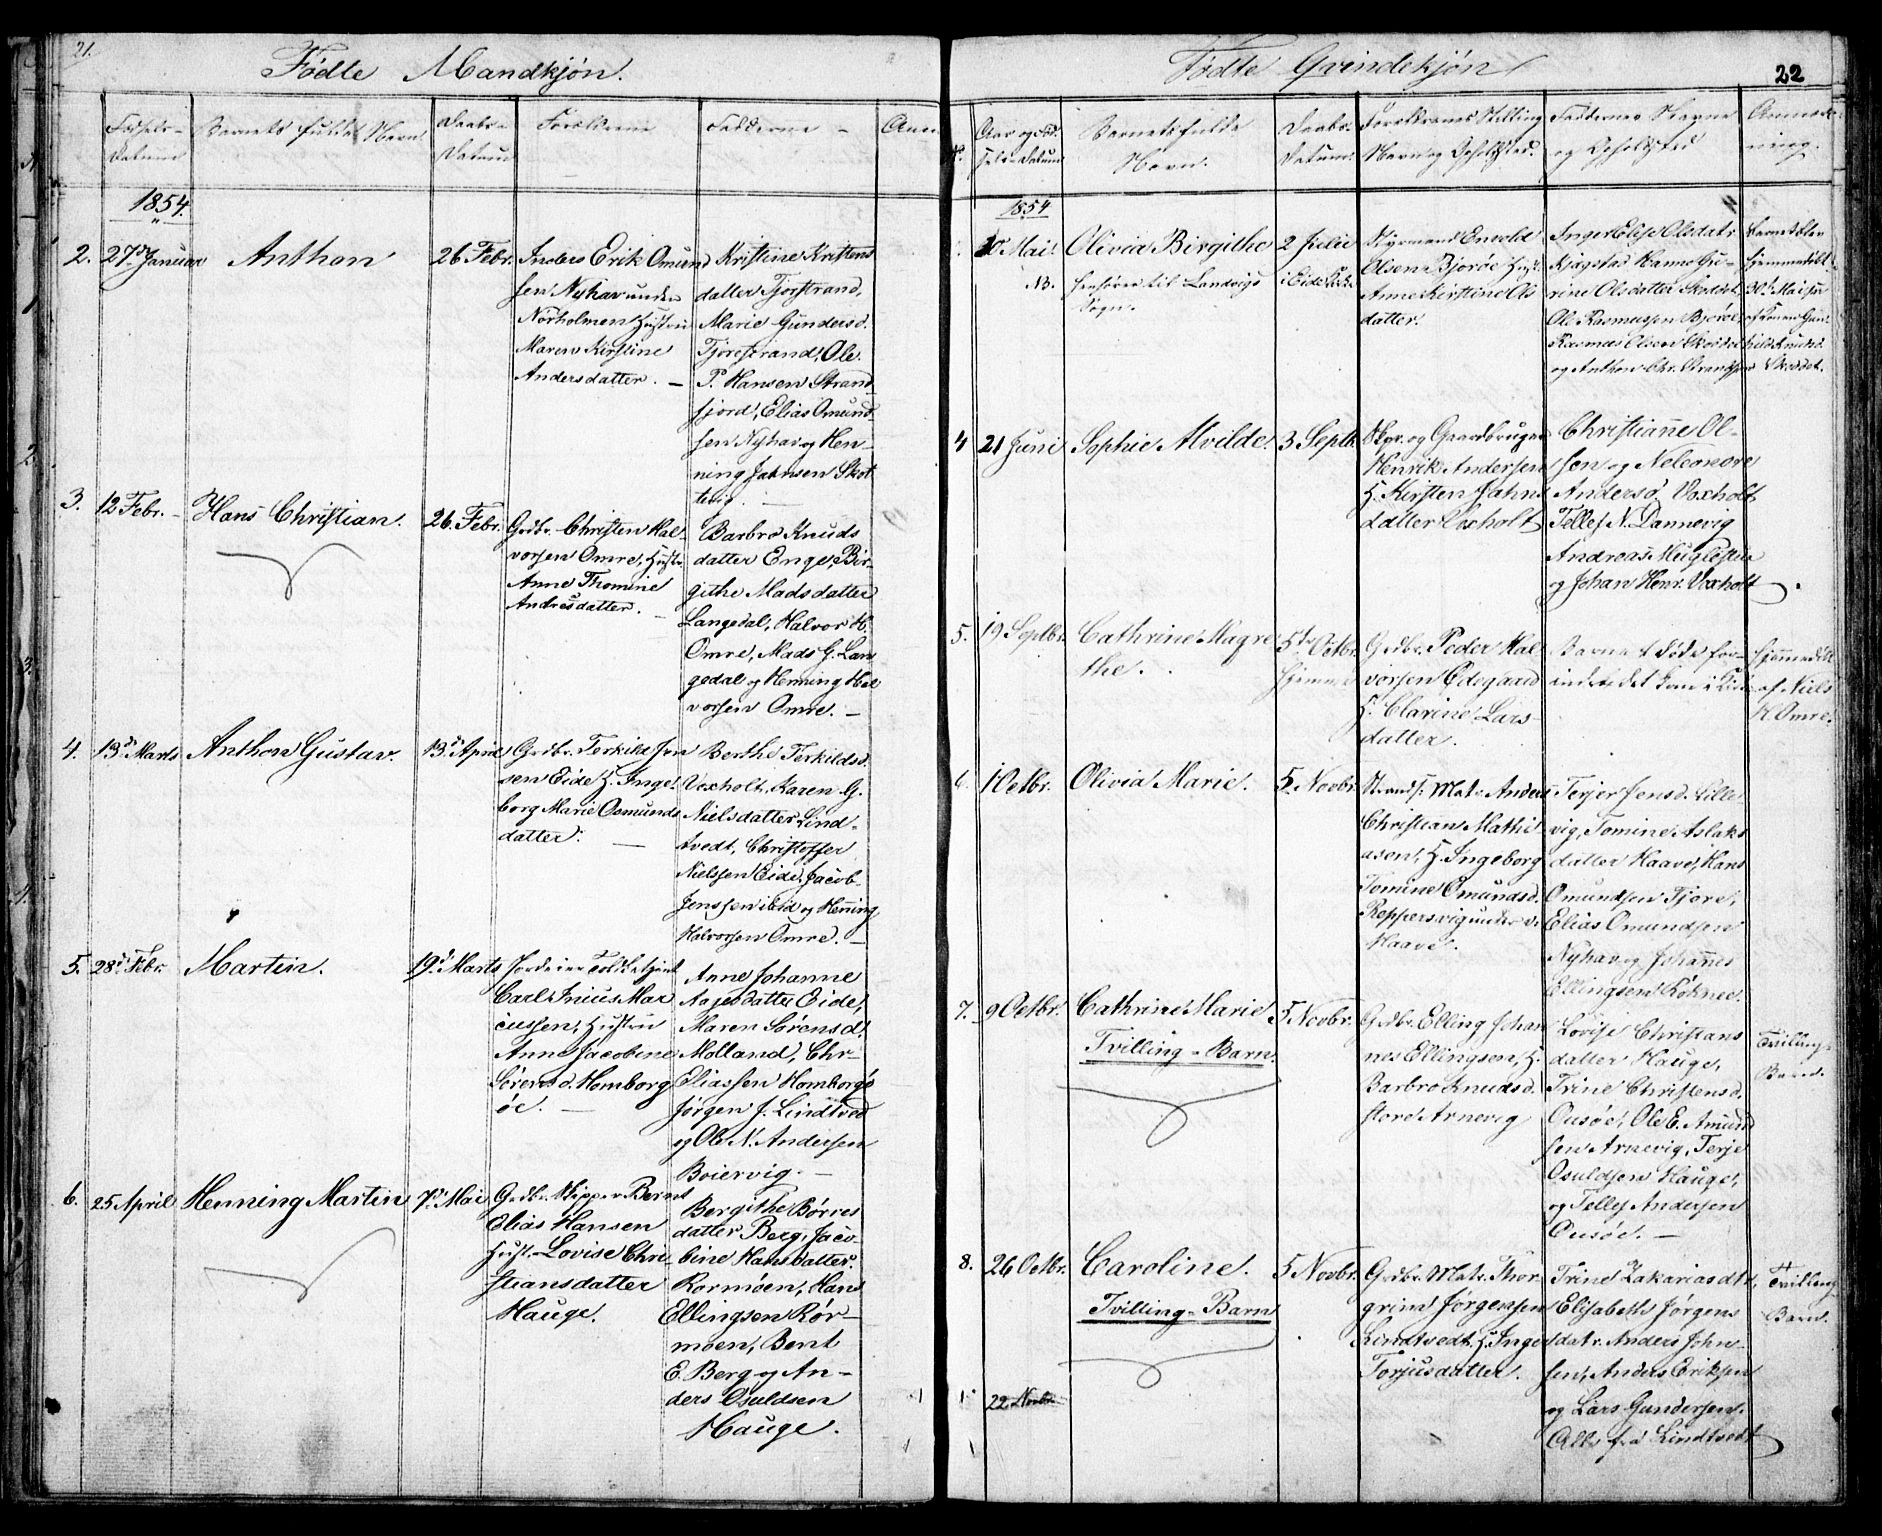 21.
Fødte Mandkjøn.
Fødsels-
Datum
Barnets fulde Navn.
Daabs-
Datum
Forældrene
Fadderne -
Anm
1854.
2. 27d Januar
Anthon
26 Febr.
Anders Erik Omund
sen Nyhavn under
Nørholmen Hustru
Maren Kirstine
Andersdatter. -
Kristine Kristens
datter Tjorstrand,
Marie Gundersd.
Tjorestrand, Ole
P. Hansen Strand
fjord, Elias Omund
sen Nyhavn og Hen-
ning Jahnsen Skot
tevig. -
3. 12 Febr. -
Hans Christian.
26. Febr.
Grdbr. Christen Hal-
vorsen Omre, Hustr.
Anne Thomine
Andresdatter. -
Barbro Knuds
datter Enge, Bir-
githe Madsdatter
Langedal, Halvor H.
Omre, Mads G. Lan
gedal og Henning Hal
vorsen Omre. -
4. 13d Marts
Anthon Gustav.
13d April
Grdbr. Terkild Jen
sen Eide H. Inge-
borg Marie Osmunds
datter. -
Berthe Terkildsd.
Voxholt, Karen G.
Nielsdatter Lind-
tvedt, Christoffer
Nielssen Eide, Jacob
Jenssen ibid og Hening
Halvorsen Omre. -
5. 28d Febr.
Martin.
19d Marts
Carl Inius Mar
cussen, Hustru
Anne Jacobine
Sørensd. Homborg
øe. -
Anne Johanne
Aagesdatter Eide,
Maren Sørensd.
Molland, Chr.
Eliassen Homborgø
Jørgen J. Lindtved
og Ole N. Andersen
Boiervig. -
6. 25 April
Henning Martin
7de Mai
Grdbr. Skipper Bernt
Elias Hansen
Hust. Lovise Chri-
stiansdatter
Hauge.
Bergithe Børres
datter Berg, Jaco-
bine Hansdatter
Rormøen, Hans
Ellingsen Rør-
moen, Bent
E. Berg og An-
ders Osuldsen
Hauge.
Fødte Qvindekjøn
22
Aar og Fød-
sels-Datum
Barnets fulde
Navn.
Daabs-
Datum.
Forældrenes Stilling
Navn og Opholdsted.
Faddernes Navne
og Opholdsted
Anmærk-
ning.
1854
10 Mai.
NB.
Olivia Birgithe
henhører til Landvigs
Sogn.
2 Julie
i Eide Kirk.
Styrmand Envold
Olsen Bjorøe Hust.
Anne Kirstine Ols
datter.
Inger Elise Olsdatr
Kjøgstad Hanne Gu-
rine Olsdatter Skoddet,
Ole Rasmussen Bjorøe,
Rasmus Olsen Skoddet
og Anthon Chr.
Barnet blev
hjemmedøbt
30d Mai
Skoddet.
4 21 Juni
Sophie Alvilde.
3 Septb.
Skpr. og Gaardbruger
Henrik Andersen
H. Kirsten Jahns
datter Voxholt
Christiane Ol-
sen og Neleonore
Andersd. Voxholt
Tellef N. Dannevig
Andreas
og Johan Henr. Voxholt.
5. 19 Septbr.
Cathrine Magre
the.
5te Octbr.
hjemme
Grdbr. Peder Hal
vorsen Ødegaard
H. Clarine Lars-
datter.
Barnet døde for-
inden det kom i Kirk
hjemmedøbt
af Niels
K. Omre.
6. 1 Octbr.
Olivia Marie.
5 Novbr.
Strands. Matr. Anders
Christian Mathi
asen, H. Ingeborg
Tomine Omundsd.
Reppersvig under
Haave.
Terjer Jensd. Lille
vig, Tomine Aslaks
datter Haave, Hans
Omundsen Tjore,
Elias Omundsen
Nyhav og Johannes
Ellingsen Kokne.
7. 9 Octbr.
Cathrine Marie
Tvilling-Barn.
5 Novbr.
Grdbr. Elling Johan
nes Ellingsen, H.
Barbro Knudsd.
store Arnevig
Lovise Christians
datter Hauge,
Trine Christensd.
Ousøe, Ole E. Amund
sen Arnevig, Terje
Osuldsen Hauge,
og Tellef Andersen
Ousøe. -
Tvilling-
Barn.
8. 26 Octbr.
Caroline.
Tvilling-Barn
5 Novbr.
Grdbr. Matr. Thor
grim Jørgensen
Lindtvedt, H. Inger
Torjusdatter.
Trine Zakariasdtr,
Elisabeth Jørgens
datr. Anders John-
sen, Anders Eriksen
og Lars Gundersen.
Alle fra Lindtvedt
Tvilling
Barn.
22 Novbr